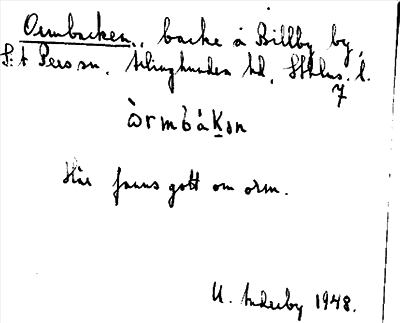 Ormbacken, backe å Billby by,
S:t Pers sn, Erlinghundra hd, Sthlms l.
7
òrmbàkən
Här fanns gott om orm.
U. Anderby 1948.